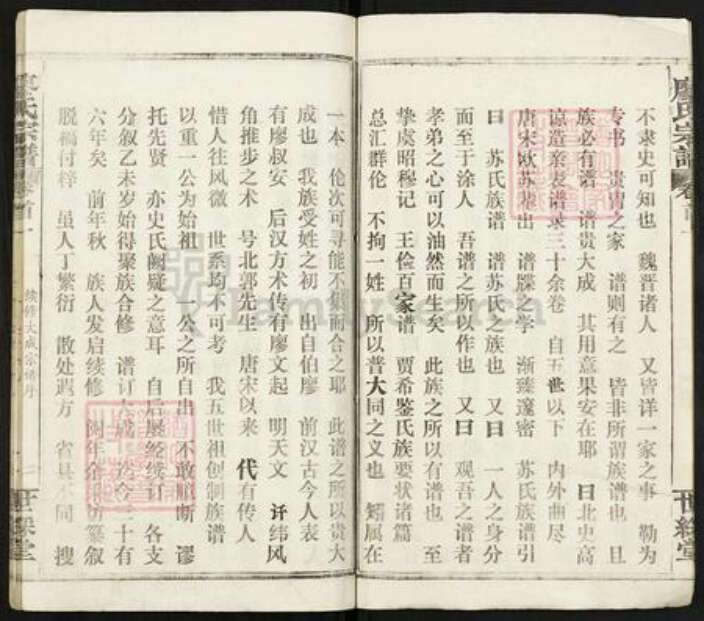 廖氏宗谱 卷首一
世䌽堂
不隶史可知也 魏晋诸人 又皆详一家之事 勒为
专书 贵胄之家 谱则有之 皆非所谓族谱也 且
族必有谱 谱贵大成 其用意果安在耶 曰北史高
谅造亲表谱录三十余卷 自五世以下 内外曲尽
唐宋欧苏辈出 谱牒之学 渐臻邃密 苏氏族谱引
曰 苏氏族谱 谱苏氏之族也 又曰 一人之身分
而至于涂人 吾谱之所以作也 又曰 观吾之谱者
孝弟之心可以油然而生矣 此族之所以有谱也 至
挚虞昭穆记 王俭百家谱 贾希鉴氏族要状诸篇
总汇群伦 不拘一姓 所以普大同之义也 矧属在
一本 伦次可寻能不 而合之耶 此谱之所以贵大
成也 我族受姓之初 出自伯廖 前汉古今人表
有廖叔安 后汉方术传有廖文起 明天文 讦纬风
角推步之术 号北郭先生 唐宋以来 代有传人
惜人往风微 世系均不可考 我五世祖创制族谱
以重一公为始祖 一公之所自出 不敢臆断 谬
托先贤 亦史氏阙疑之意耳 自后屡经续订 各支
分叙乙未岁始得聚族合修 谱订大成 迄今三十有
六年矣 前年秋 族人发启续修 阅年余 纂叙
脱稿付梓 虽人丁繁衍 散处遐方 省县不同 搜
廖氏宗谱 卷首一
续修大成宗谱序
二
世䌽堂
FamilySearch